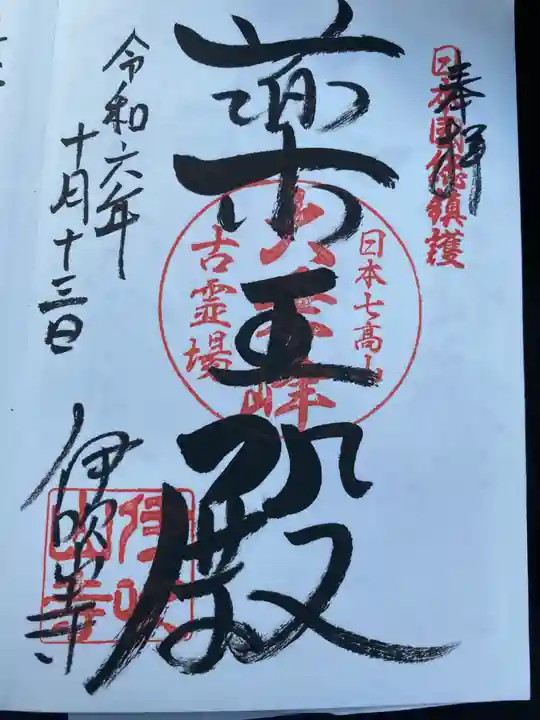 奉拝
日本国修鎮護
薬王殿
日本七高山
古霊場
令和六年
十月十三日
伊吹山寺
伊吹山寺